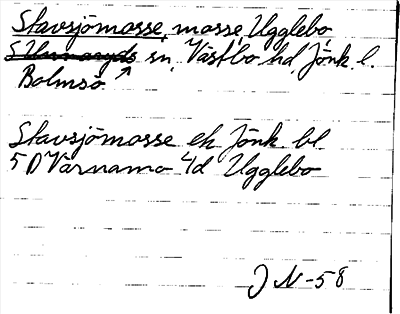 Stavsjömosse, mosse, Ugglebo
S. Unnaryds sn, Västbo hd, Jönk. l.
Bolmsö ↗
Stavsjömosse ek Jönk. bl.
5 D Värnamo 4d Ugglebo
J N -58